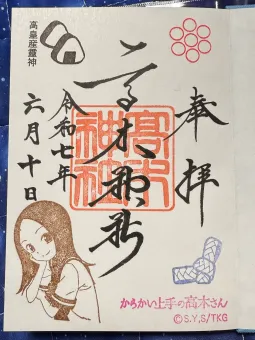 奉拝
高木神社
高木神社
高皇産靈神
令和七年
六月十日
からかい上手の高木さん
©S.Y,S/TKG